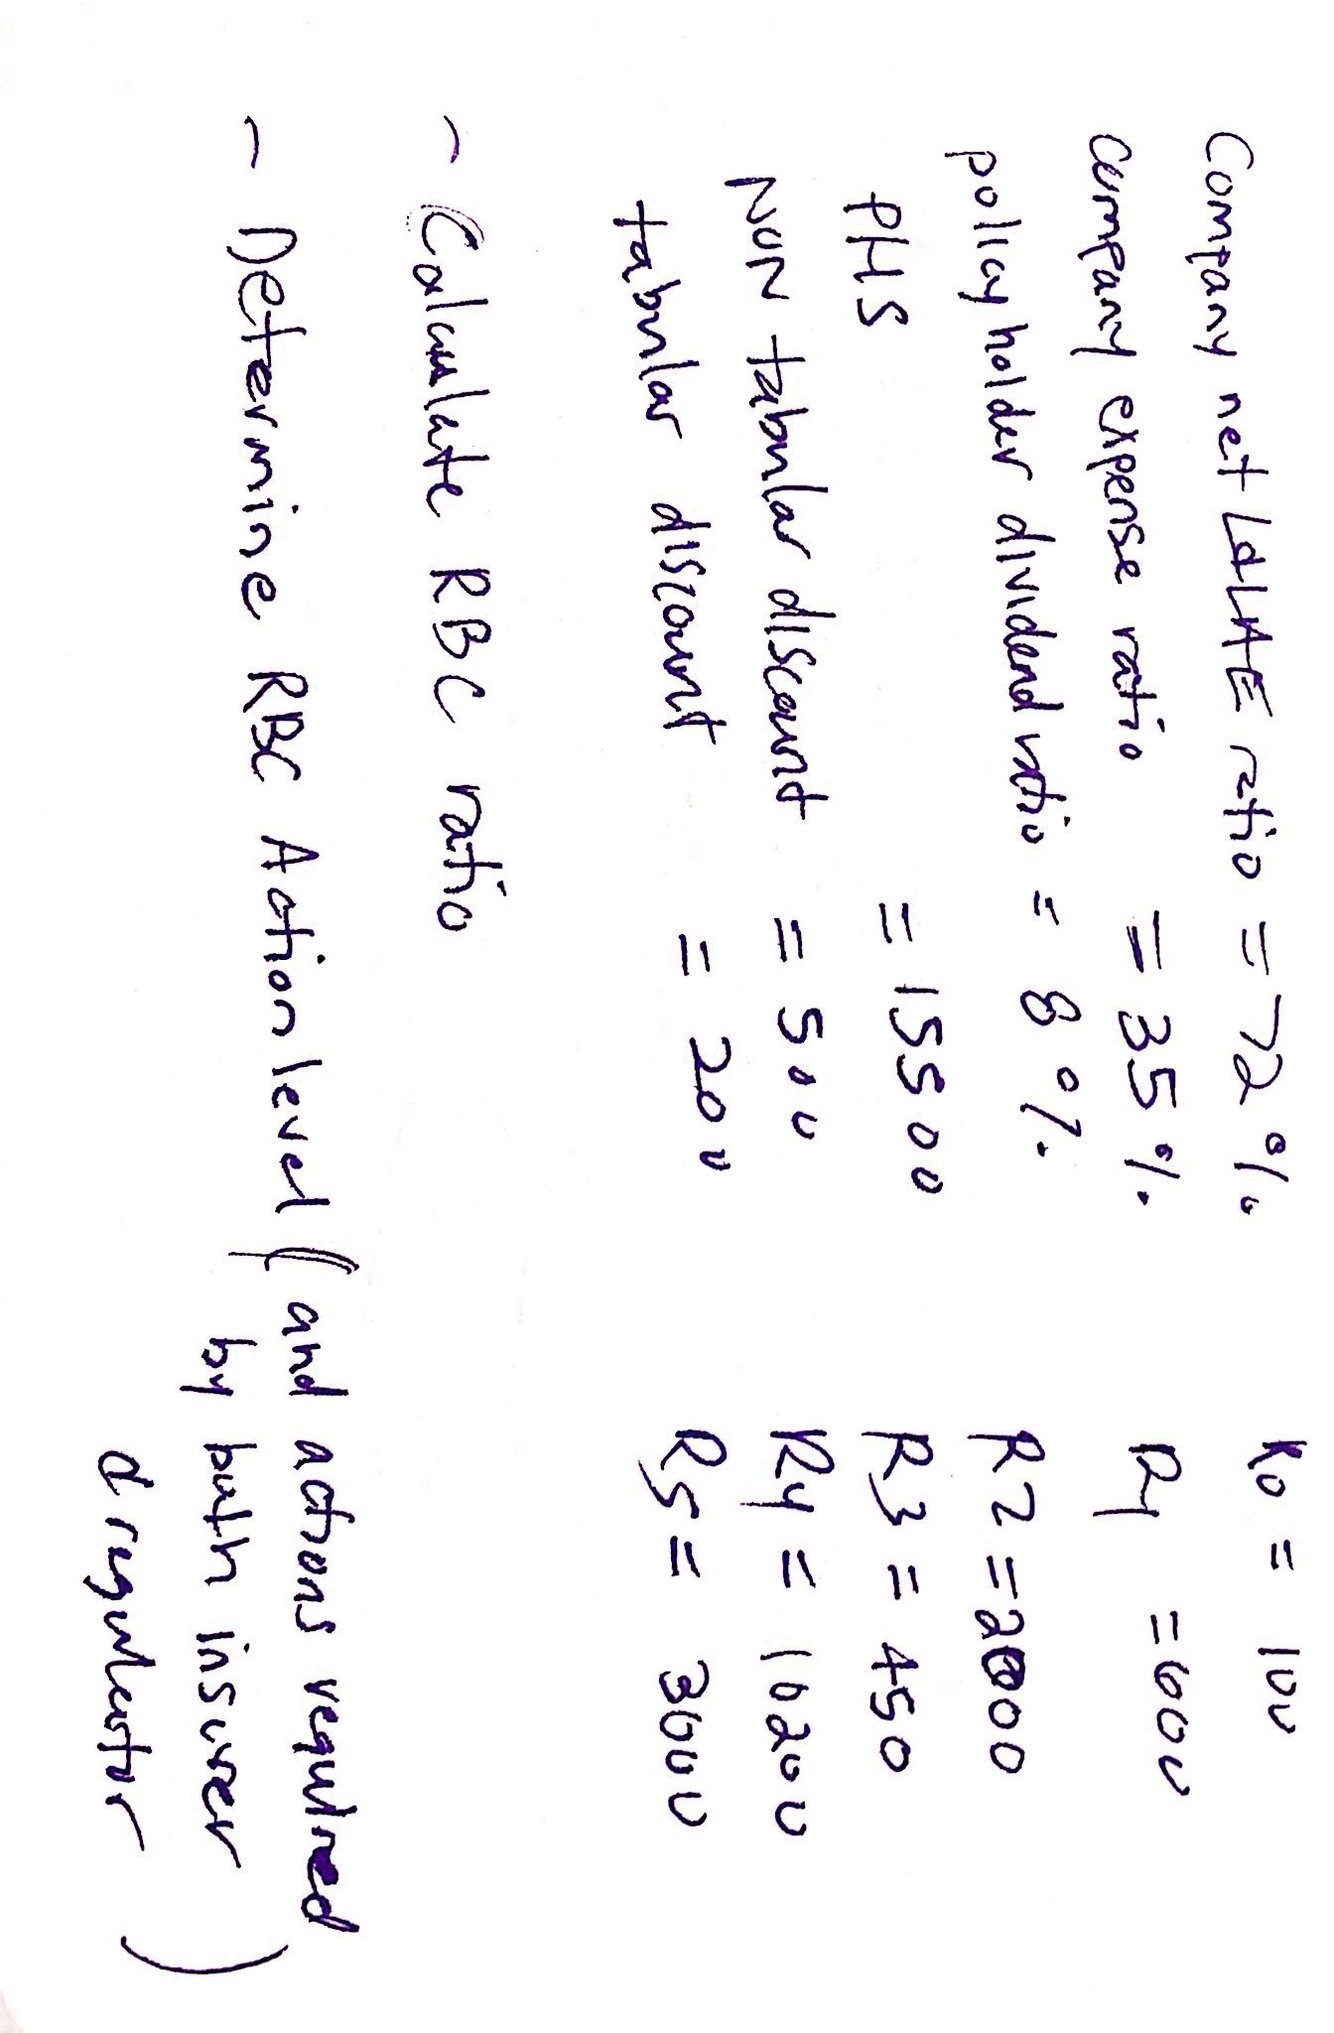 Company net L&LAE ratio = 72%
Company expense ratio = 35%
policyholder dividend ratio = 8%
PHS = 15500
Non tabular discount = 500
tabular discount = 200
R0 = 100
R1 = 600
R2 = 2000
R3 = 450
R4 = 10200
R5 = 3000
- Calculate RBC ratio
- Determine RBC Action level (and actions required
by both insurer
& regulator)